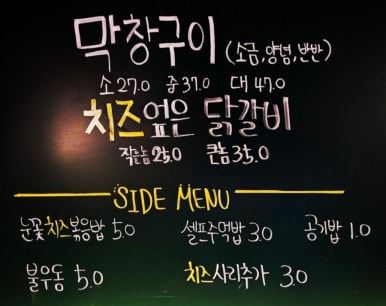 막창구이 (소금,양념,반반)
소27.0 중37.0 대47.0
치즈엎은 닭갈비
작은놈25.0 큰놈35.0
SIDE MENU
눈꽃치즈볶음밥 5.0 셀프주먹밥 3.0 공기밥 1.0
불우동 5.0 치즈사리추가 3.0